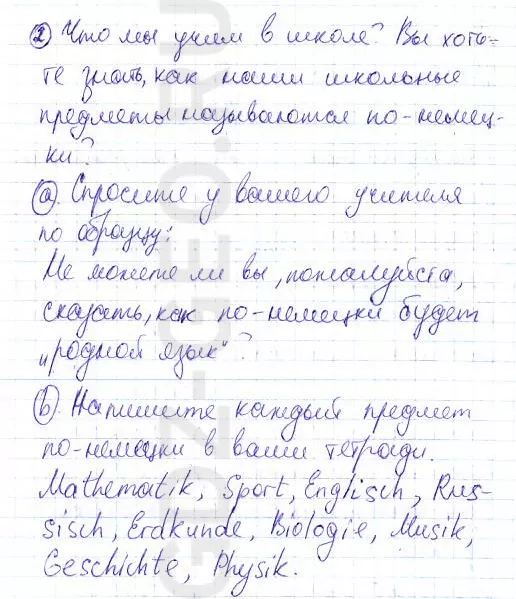 2 Что мы учим в школе? Вы хоти-
те знать, как наши школьные
предметы называются по-немец-
ки?
a. Спросите у вашего учителя
по образцу:
Не можете ли вы, пожалуйста,
сказать, как по-немецки будет
„родной язык"?
b. Напишите каждый предмет
по-немецки в ваши тетради.
Mathematik, Sport, Englisch, Rus-
sisch, Erdkunde, Biologie, Musik,
Geschichte, Physik.
GDZ-GEO.RU